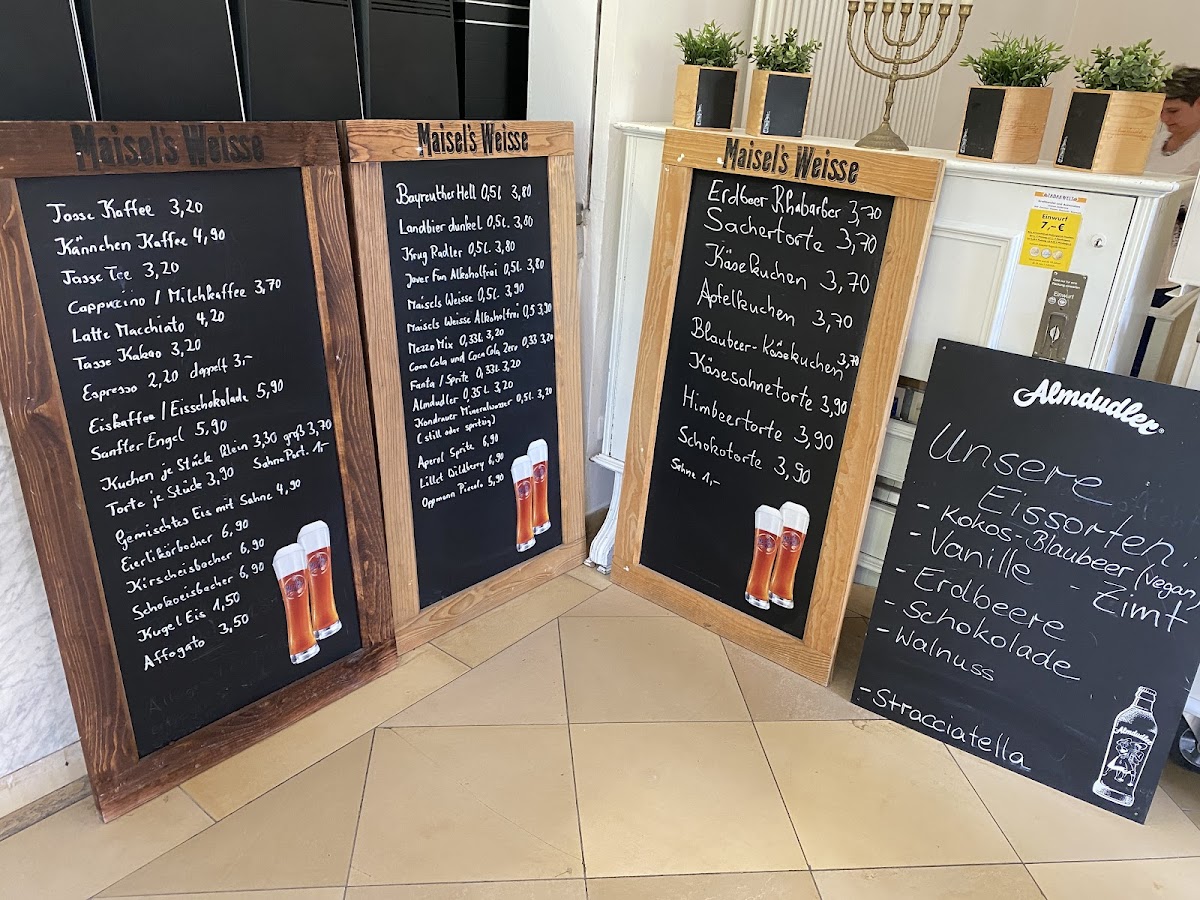 Maisel's Weisse
Tasse Kaffee 3,20
Kännchen Kaffee 4,90
Tasse Tee 3,20
Cappuccino / Milchkaffee 3,70
Latte Macchiato 4,20
Tasse Kakao 3,20
Espresso 2,20 doppelt 3,-
Eiskaffee / Eisschokolade 5,90
Sanfter Engel 5,90
Kuchen je Stück klein 3,30 groß 3,70
Torte je Stück 3,90 Sahne Port. 1,-
Gemischtes Eis mit Sahne 4,90
Eierlikörbecher 6,90
Kirscheisbecher 6,90
Schokoeisbecher 6,90
Kugel Eis 1,50
Affogato 3,50
Maisel's Weisse
Bayreuther Hell 0,5l 3,80
Landbier dunkel 0,5l. 3,80
Krug Radler 0,5l. 3,80
Jever Fun Alkoholfrei 0,5l. 3,80
Maisels Weisse 0,5l. 3,90
Maisels Weisse Alkoholfrei 0,5 3,90
Mezzo Mix 0,33l 3,20
Coca Cola und Coca Cola Zero 0,33 3,20
Fanta / Sprite 0,33l 3,20
Almdudler 0,35l 3,20
Kondrauer Mineralwasser 0,5l. 3,20
(still oder spritzig)
Aperol Spritz 6,90
Lillet Wildberry 6,90
Oppmann Piccolo 5,90
Maisel's Weisse
Erdbeer Rhabarber 3,70
Sachertorte 3,70
Käsekuchen 3,70
Apfelkuchen 3,70
Blaubeer-Käsekuchen 3,70
Käsesahnetorte 3,90
Himbeertorte 3,90
Schokotorte 3,90
Sahne 1,-
Einwurf
7,-€
Einwurf
Almdudler
Unsere
Eissorten:
- Kokos-Blaubeer (vegan)
- Vanille - Zimt
- Erdbeere
- Schokolade
- Walnuss
- Stracciatella
Almdudler